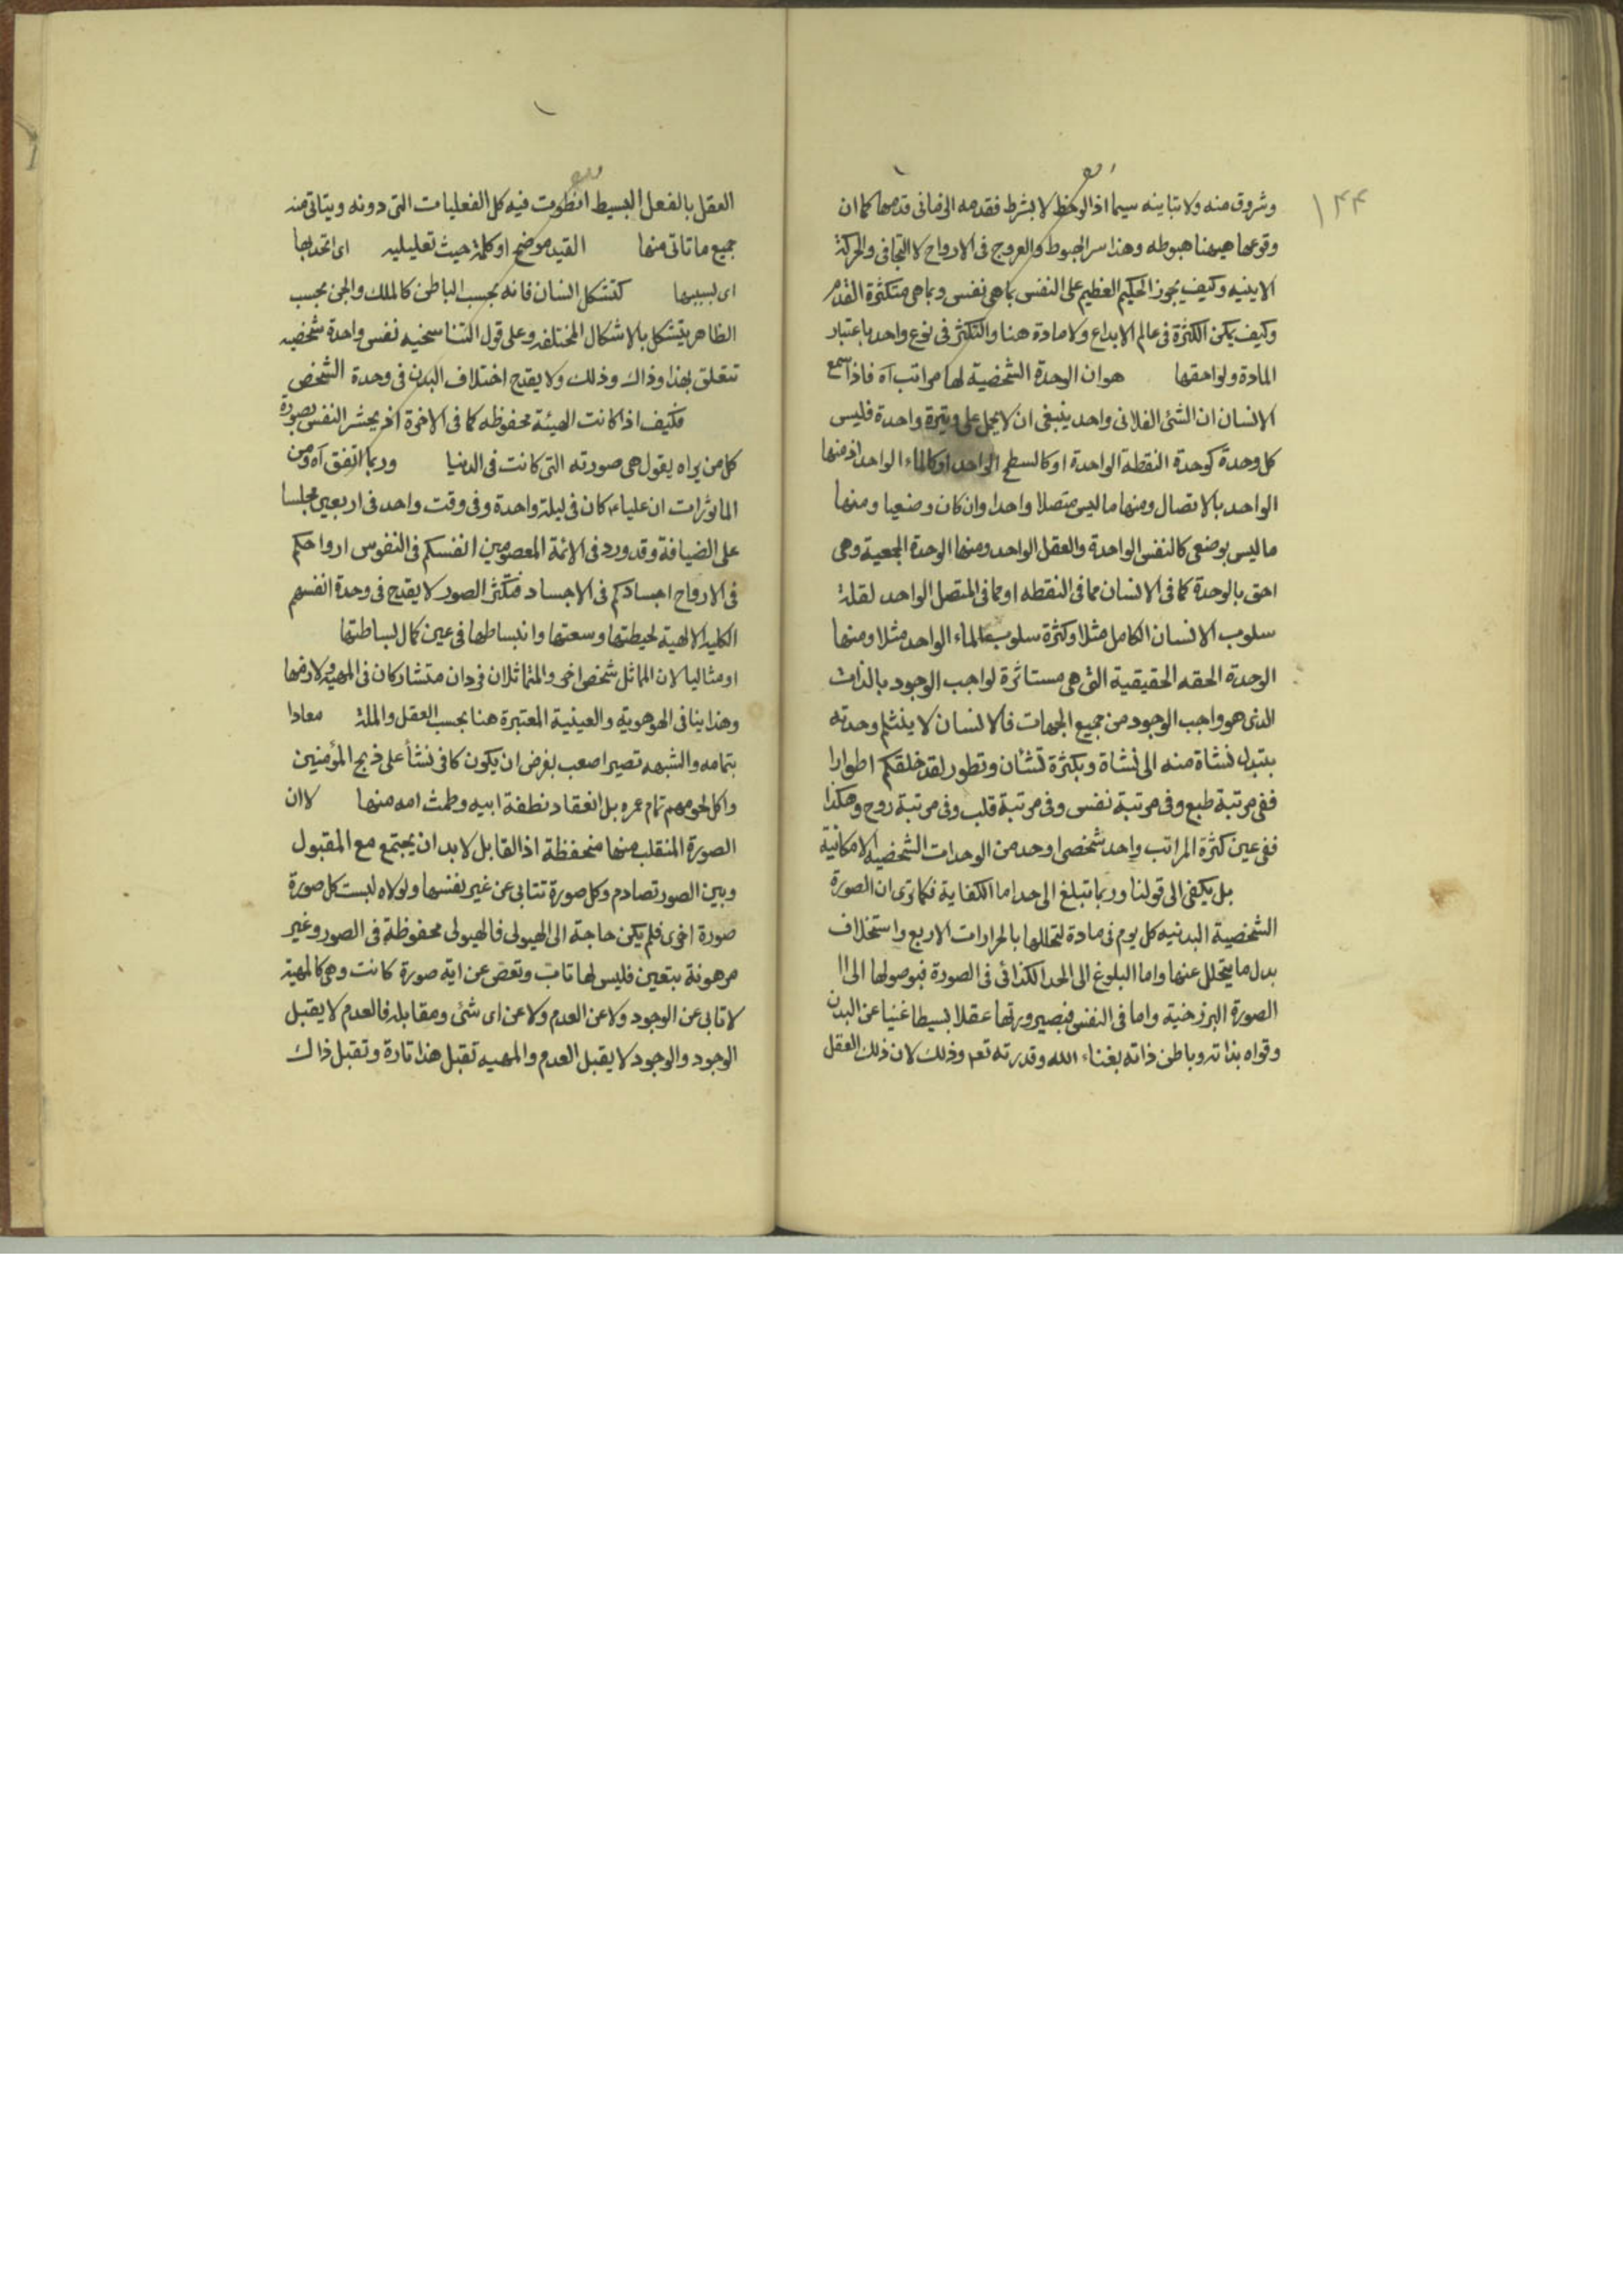 ۱۴۴
وشروق منه ولا تباينه سيما اذا لوحظ لا بشرط فقدمه الذاتى قدمها كما ان
وقوعها هيهنا هبوطه وهذا سر الهبوط والعروج فى الارواح لا التجافى والحركة
الاينيه وكيف يجوز الحكيم العظيم على النفس بما هى نفس وبما هى متكثرة القدم
وكيف يمكن الكثرة فى عالم الابداع ولا مادة هنا والتكثر فى نوع واحد باعتبار
المادة ولواحقها هو ان الوحدة الشخصية لها مراتب آه فاذا سمع
الانسان ان الشئ الفلانى واحد ينبغى ان لا يحمل على وتيرة واحدة فليس
كل وحدة كوحدة النقطة الواحدة او كالسطح الواحد او كالماء الواحد اذ منها
الواحد بالاتصال ومنها ما ليس متصلا واحدا وان كان وضعيا ومنها
ما ليس بوضعى كالنفس الواحدة والعقل الواحد ومنها الوحدة الجمعية وهى
احق بالوحدة كما فى الانسان مما فى النقطه او مما فى المتصل الواحد لقلة
سلوب الانسان الكامل مثلا وكثرة سلوب الماء الواحد مثلا ومنها
الوحدة الحقه الحقيقية التى هى مستاثرة لواجب الوجود بالذات
الذى هو واجب الوجود من جميع الجهات فالانسان لا ينثلم وحدته
بتبدل نشاة منه الى نشاة وبكثرة تشأن وتطور لقد خلقكم اطوارا
ففى مرتبة طبع وفى مرتبة نفس وفى مرتبة قلب وفى مرتبة روح وهكذا
ففى عين كثرة المراتب واحد شخصى اوحد من الوحدات الشخصيه الامكانية
بل يكفى الى قولنا وربما تبلغ الى حد اما الكفاية فكما ترى ان الصورة
الشخصية البدنيه كل يوم فى مادة لتحللها بالحرارات الاربع واستخلاف
بدل ما يتحلل عنها واما البلوغ الى الحد الكذائى فى الصورة فبوصولها الى
الصورة البرزخية واما فى النفس فبصيرورتها عقلا بسيطا غنيا عن البدن
وقواه بذاته وباطن ذاته بغناء الله وقدرته تعم وذلك لان ذلك العقل
العقل بالفعل البسيط انطوت فيه كل الفعليات التى دونه ويتاتى منه
جميع ما تاتى منها القيد موضح او كلمة حيث تعليليه اى اتحد بها
اى بسببها كتشكل انسان فانه بحسب الباطن كالملك والجن بحسب
الظاهر يتشكل بالاشكال المختلفه وعلى قول التناسخيه نفس واحدة شخصيه
تتعلق بهذا وذاك وذلك ولا يقدح اختلاف البدن فى وحدة الشخص
فكيف اذا كانت الهيئة محفوظه كما فى الاخرة اذ يحشر النفس بصورة
كل من يراه يقول هى صورته التى كانت فى الدنيا وربما اتفق آه ومن
الماثورات ان عليا ع كان فى ليلة واحدة وفى وقت واحد فى اربعين مجلسا
على الضيافة وقد ورد فى الائمة المعصومين انفسكم فى النفوس ارواحكم
فى الارواح اجسادكم فى الاجساد فتكثر الصور لا يقدح فى وحدة انفسهم
الكليه الالهية لحيطتها وسعتها وانبساطها فى عين كمال بساطتها
او مثاليا لان المماثل شخص اخر والمتماثلان فردان متشاركان فى المهية ولازمها
وهذا ينافى الهوهوية والعينية المعتبرة هنا بحسب العقل والملة معادا
بتمامه والشبهه تصير اصعب بفرض ان يكون كافر نشأ على ذبح المؤمنين
واكل لحومهم تمام عمره بل انعقاد نطفة ابيه وطمث امه منها لا ان
الصورة المنقلب منها منحفظة اذ القابل لا بد ان يجتمع مع المقبول
وبين الصور تصادم وكل صورة تتابى عن غير نفسها ولولاه لبست كل صورة
صورة اخرى فلم يكن حاجة الى الهيولى فالهيولى محفوظة فى الصور وغير
مرهونة بتعين فليس لها تاب وتعص عن اية صورة كانت وهى كالمهية
لا تابى عن الوجود ولا عن العدم ولا عن اى شئ ومقابله فالعدم لا يقبل
الوجود والوجود لا يقبل العدم والمهيه تقبل هذا تارة وتقبل ذاك